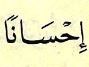 إِحْسَانًا